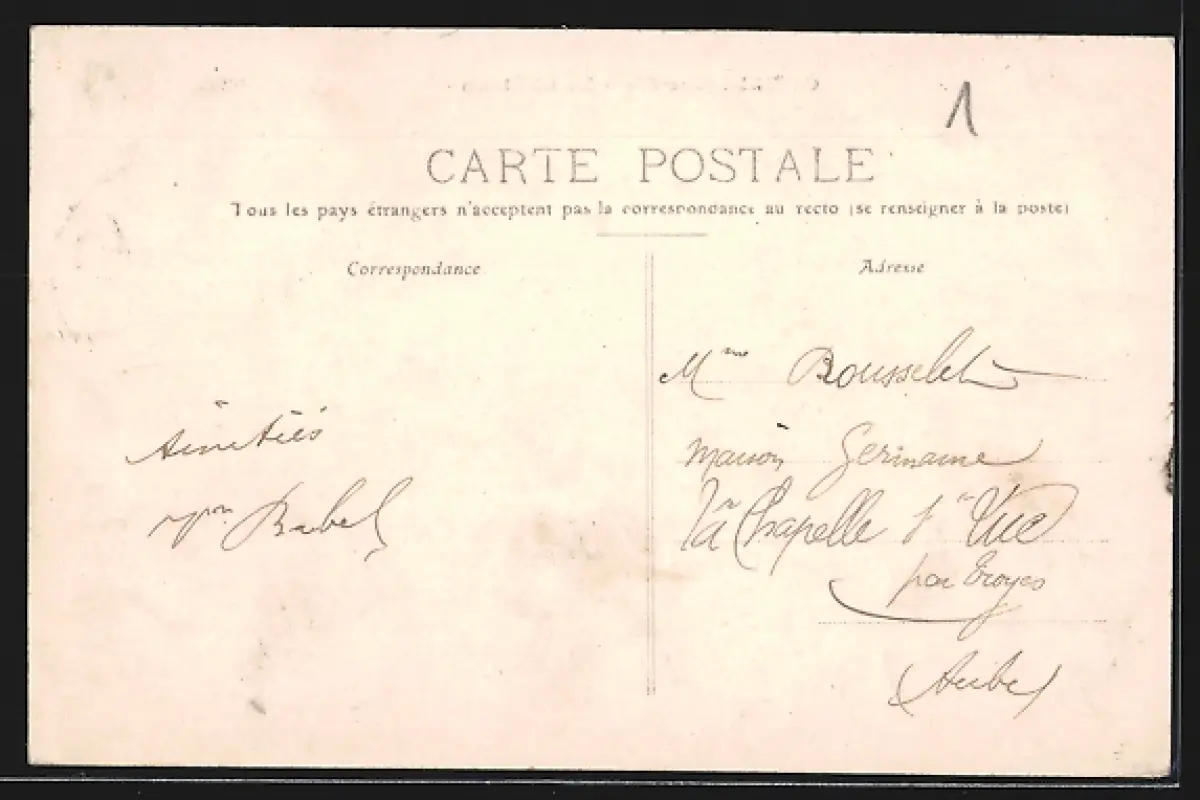 1
CARTE POSTALE
Tous les pays étrangers n'acceptent pas la correspondance au recto (se renseigner à la poste)
Correspondance
Adresse
Amitiés
Babel
Mme Rousselet
maison Germaine
la Chapelle St Luc
par Troyes
Aube